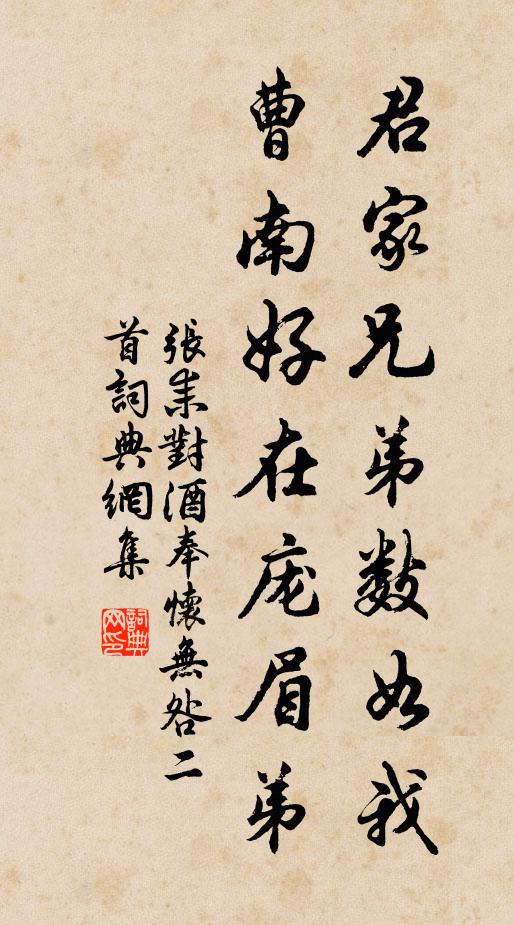 君家兄弟数如我
曹南好在庞眉弟
張耒對酒奉懷無咎二
首詞典網集
詞典
网印